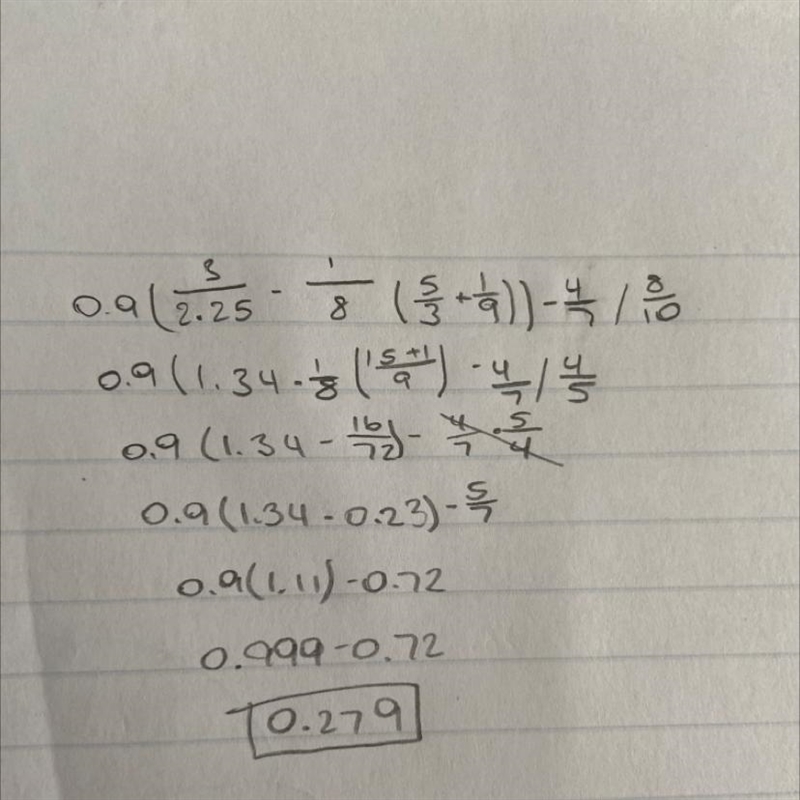 0.9(3/2.25 - 1/8 (5/3 + 1/9)) - 4/7 / 8/10
0.9(1.34 - 1/8 (15+1/9) - 4/7 / 4/5
0.9(1.34 - 16/72) - 4/7 · 5/4
0.9(1.34 - 0.23) - 5/7
0.9(1.11) - 0.72
0.999 - 0.72
0.279